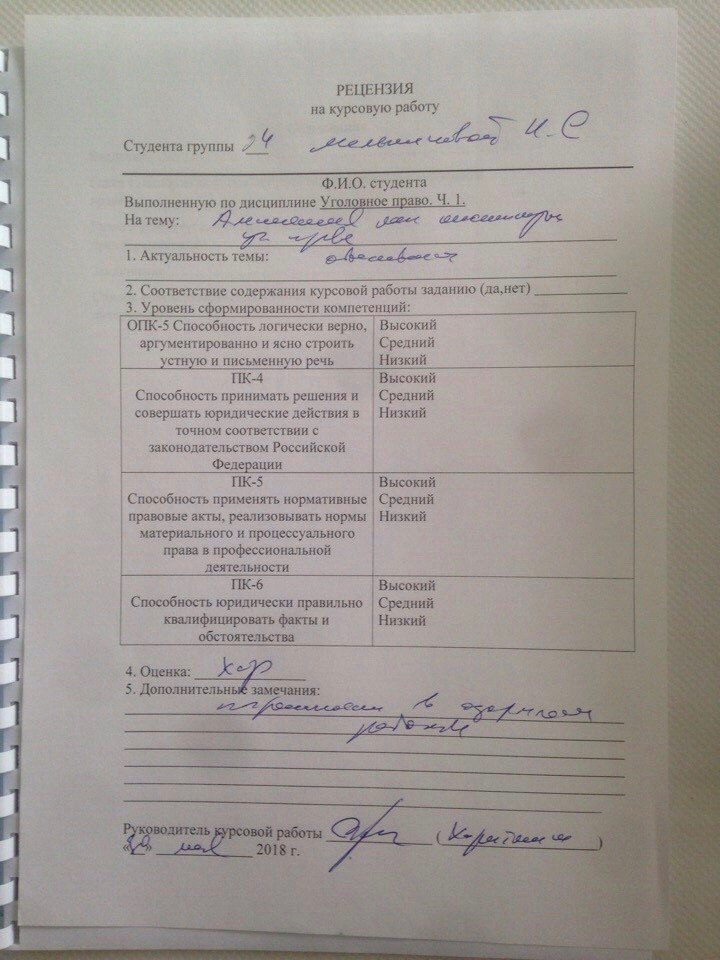 РЕЦЕНЗИЯ
на курсовую работу
Студента группы 24 И. С
Ф.И.О. студента
Выполненную по дисциплине Уголовное право. Ч. 1.
На тему: Амнистия как институт
уг. права
1. Актуальность темы:
2. Соответствие содержания курсовой работы заданию (да,нет)
3. Уровень сформированности компетенций:
ОПК-5 Способность логически верно,
аргументированно и ясно строить
устную и письменную речь
Высокий
Средний
Низкий
ПК-4
Способность принимать решения и
совершать юридические действия в
точном соответствии с
законодательством Российской
Федерации
Высокий
Средний
Низкий
ПК-5
Способность применять нормативные
правовые акты, реализовывать нормы
материального и процессуального
права в профессиональной
деятельности
Высокий
Средний
Низкий
ПК-6
Способность юридически правильно
квалифицировать факты и
обстоятельства
Высокий
Средний
Низкий
4. Оценка: хор
5. Дополнительные замечания:
в
работы
Руководитель курсовой работы
мая 2018 г.